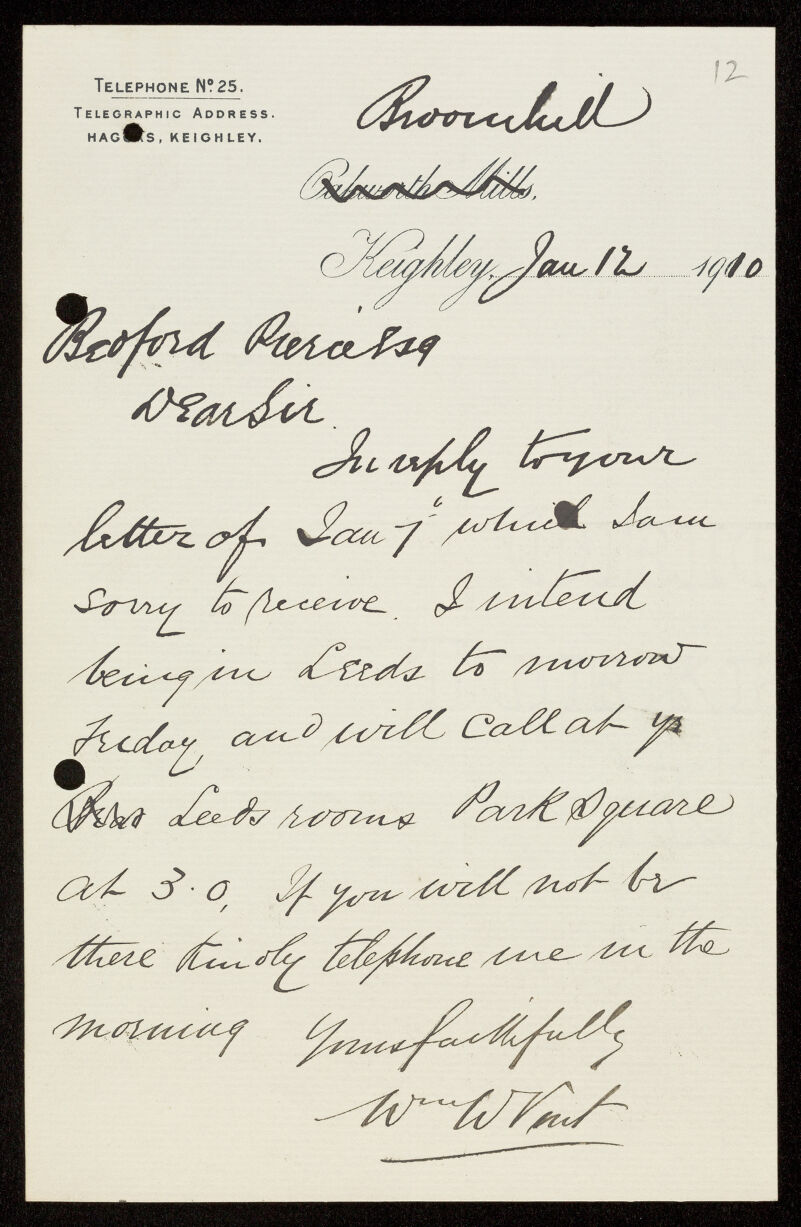 12
TELEPHONE Nº 25.
TELEGRAPHIC ADDRESS.
HAGGAS, KEIGHLEY.
Broomhill
Oakworth Mills,
Keighley, Jan 12 1910
Bedford Pierce Esq
Dear Sir
In reply to your
letter of Jan 7" which I am
sorry to receive. I intend
being in Leeds to morrow
Friday, and will call at yr
Leeds rooms Park Square
at 3.0, If you will not be
there kindly telephone me in the
morning Yours faithfully
Wm W